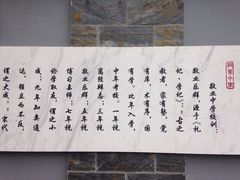 敬业中学校训，
敬业乐群，源于《礼
记·学记》：“古之
教者，家有塾，党
有庠，术有序，国
有学。比年入学，
中年考校。一年视
离经辨志；三年视
敬业乐群；五年视
博习亲师；七年视
论学取友，谓之小
成；九年知类通
达，强立而不反，
谓之大成。”宋代